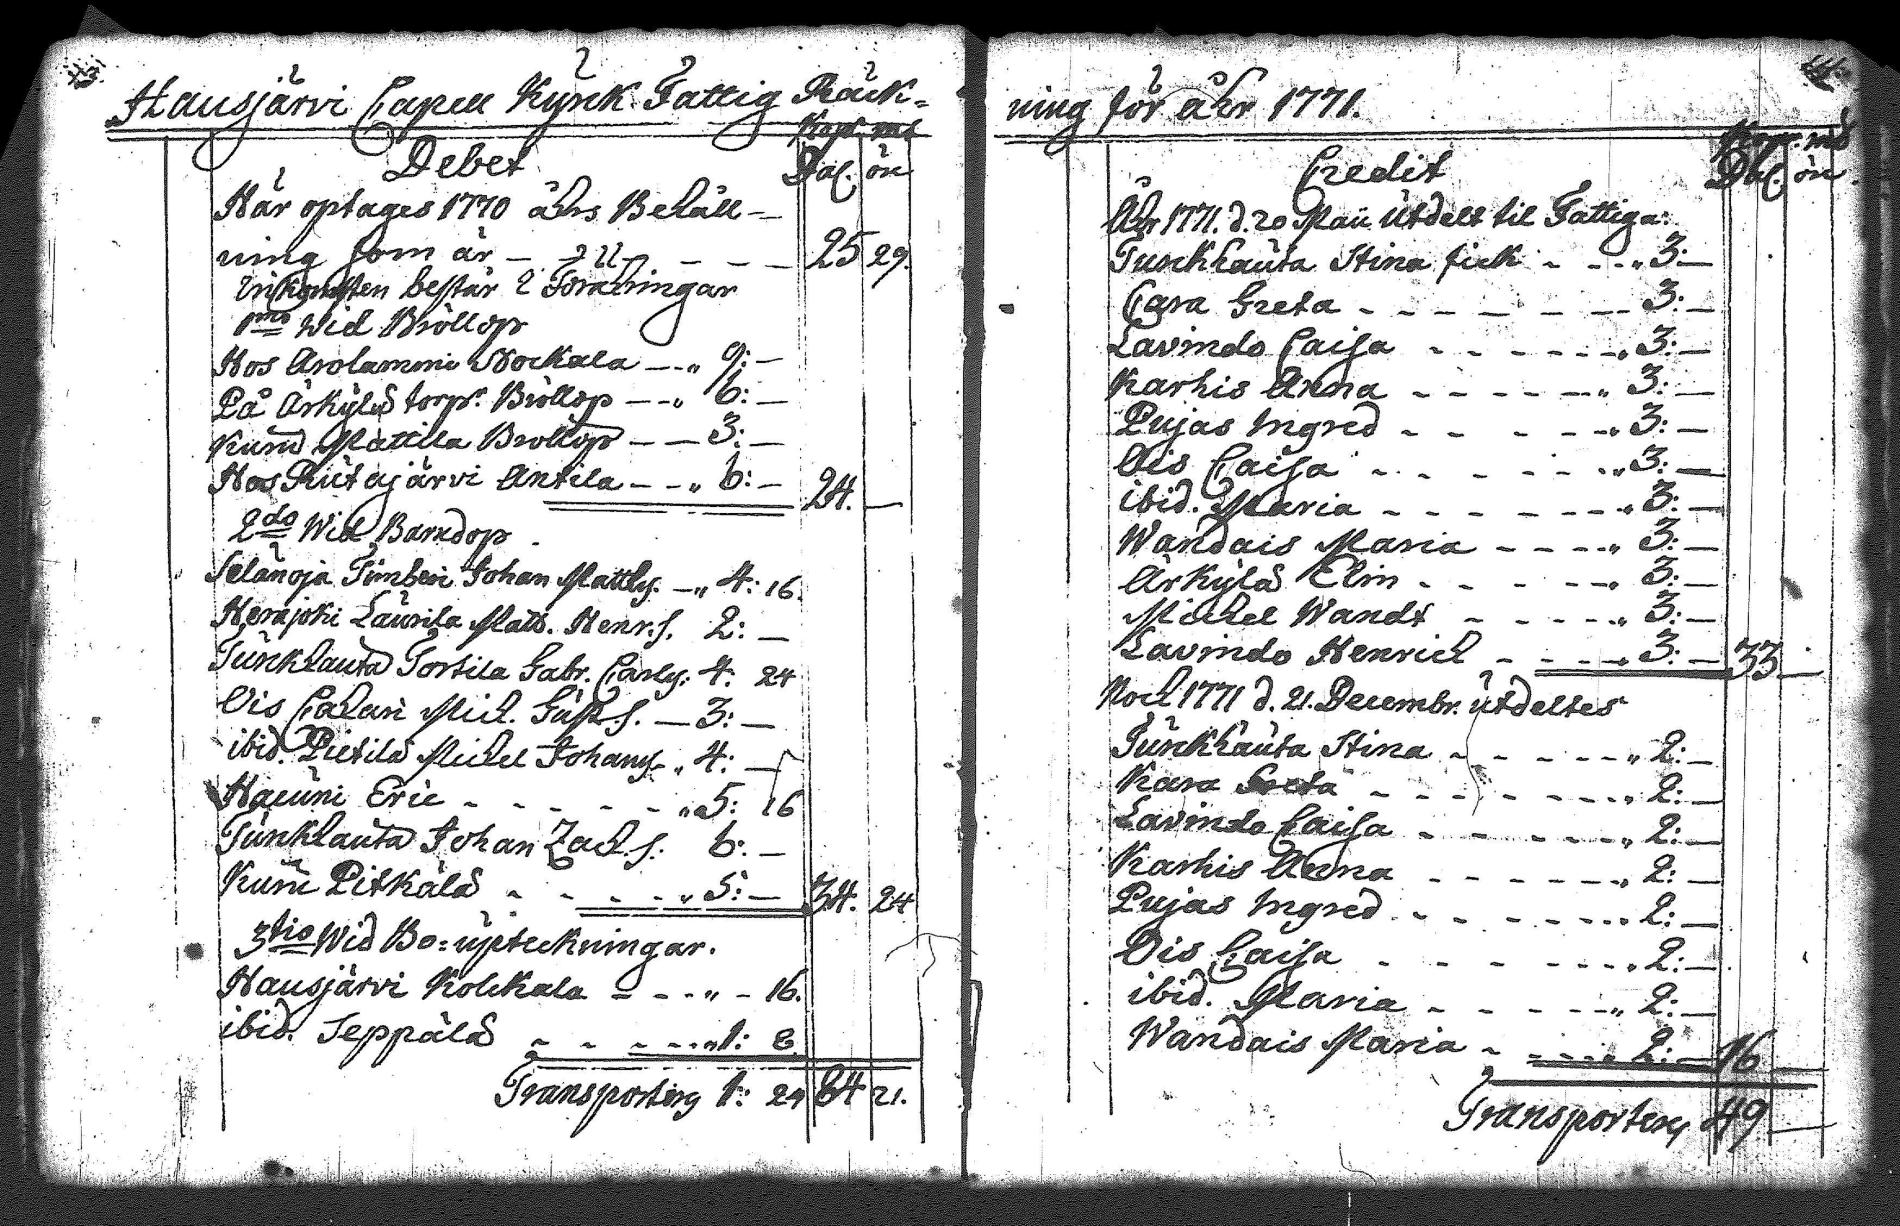 43.
Hausjärvi Capell Kyrk Fattig Räck=
Kopp. mt
Debet Dal. ör
Här optages 1770 åhrs Behåll-
ning som är - - - - 25 29.
Inkomsten består i Förähringar
1mo Wid Bröllop
Hos Arolammi Kockala - - „ 9: -
På Ärkylä torp: Bröllop - - „ 6: -
Kurud Mattila Bröllop - - 3: -
Hos Riutajärvi Antila - - „ 6: - 24. -
2do Wid Barndop
Selänoja Timberi Johan Mattss. - „ 4: 16.
Herajoki Laurila Matts. Henr.s. 2: -
Turkhauta Tortila Gabr. Carlss: 4: 24
Ois Calari Mich. Gust.s. - 3: -
ibid. Pietilä Michel Johanss. „ 4: -
Eric - - - - - „ 5: 16
Turkhauta Johan Zach.s. 6: -
Pitkälä - - - - „ 5: - 34. 24
3tio Wid Bo=upteckningar.
Hausjärvi Kolckala - - - „ - 16.
ibid. Seppälä - - - - - „ 1: 8.
Transporterss 1: 24 84 21.
44.
ning för åhr 1771.
mt
Credit Dal. ör
Åhr 1771. d. 20 Maii utdelt til Fattiga:
Turckhauta Stina fick - - - „ 3: -
Cara Greta - - - - - - - 3: -
Lavindo Caisa - - - - - - „ 3: -
Karhis Anna - - - - - - „ 3: -
Pujas Ingred - - - - - „ 3: -
Ois Caisa - - - - - - „ 3: -
ibid. Maria - - - - - - - „ 3: -
Wandais Maria - - - - „ 3: -
Ärkylä Elin - - - - - „ 3: -
Michel Wandt - - - - - „ 3: -
Lavindo Henrich - - - - „ 3: - 33 -
Noch 1771 d. 21. Decembr. utdeltes
Turkhauta Stina - - - - - „ 2: -
Kara Greta - - - - - - - „ 2: -
Lavindo Caisa - - - - - - „ 2: -
Karhis Anna - - - - - - „ 2: -
Pujas Ingred - - - - - - „ 2: -
Ois Caisa - - - - - - - „ 2: -
ibid. Maria - - - - - - „ 2: -
Wandais Maria - - - - - „ 2: - 16 -
Transporterss 49 -